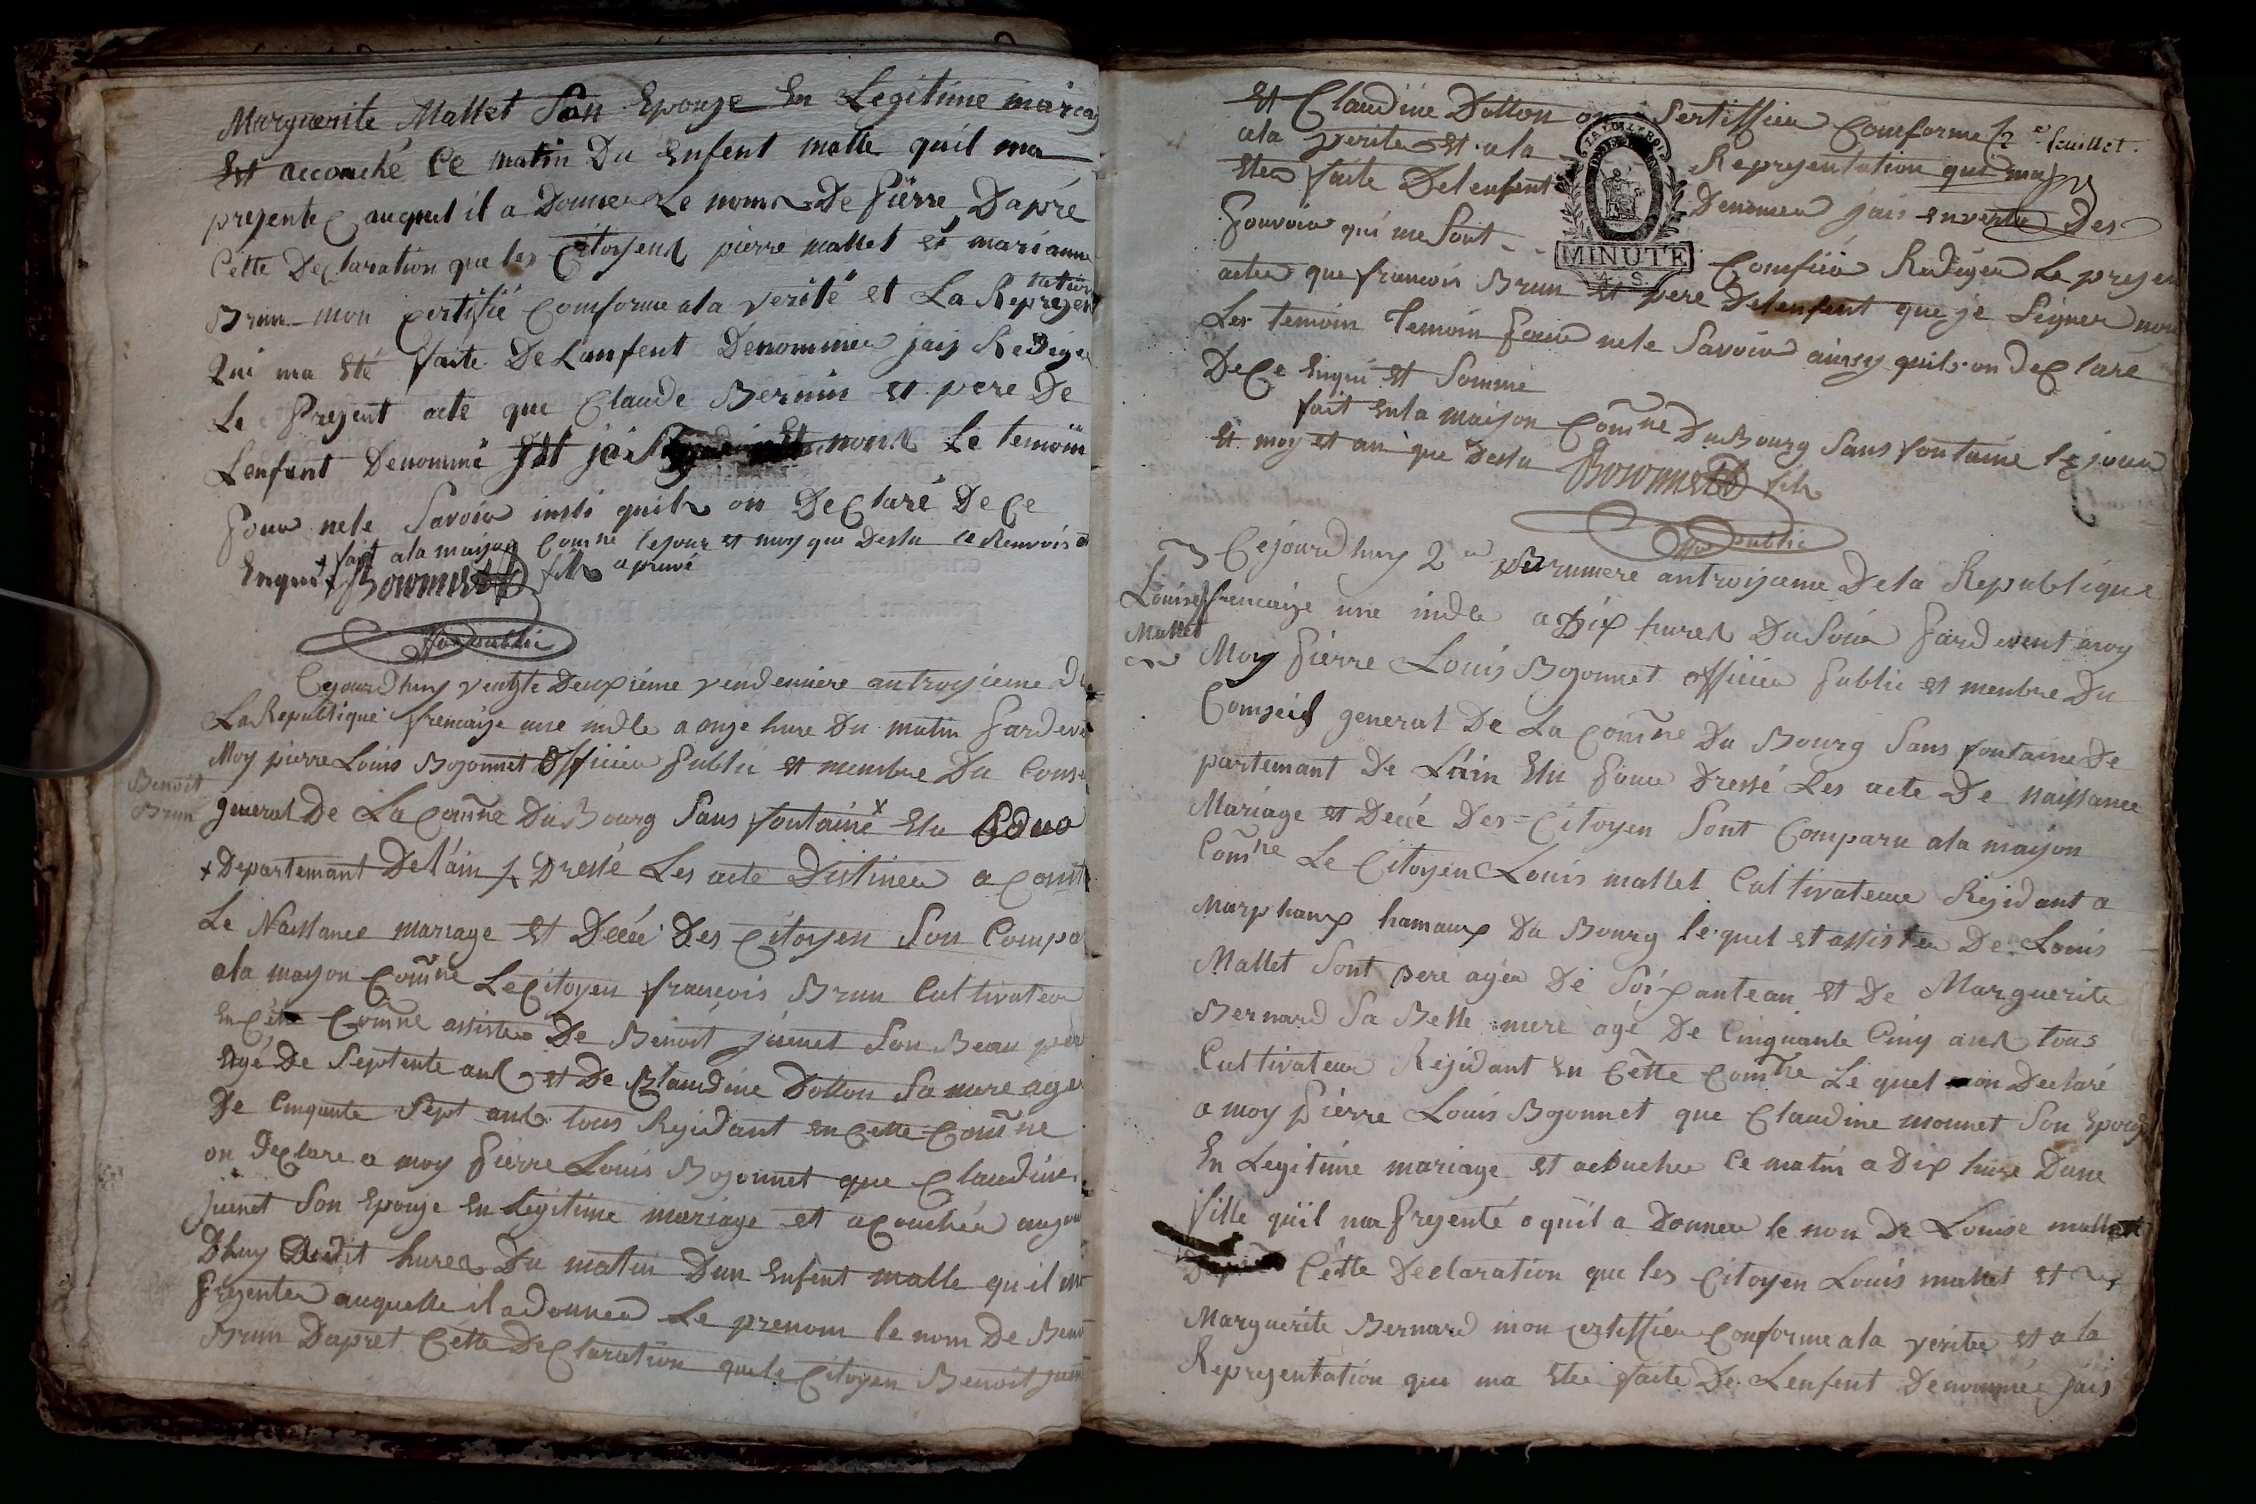 Marguerite Mallet Son Epouze En Legitime mariag
Est accouché Ce matin Du enfent malle quil ma
presente auquel il a Donner Le nom De Pierre Dapré
Cette Declaration que les Citoyens pierre mallet et marianne
Brun mon Certifié Comforme ala verité et La Represen
tation
Qui ma été faite De Lenfent Denommer jais Rediger
Le Present acte que Claude Bernin et pere De
Lenfent Denommé Le temoin
Pour nele Savoir insti quils on Declaré De Ce
Enqui + fait ala maison Comne lejour et moy que Desu Ce Renvois
apruvé
fils
offier public
Cejourdhuy ventzte Deuxiéme vendemiere antroisieme De
La Republique frencaize une indle a onze hure Du matin Pardeva
Moy pierre Louis Bozonnet Officier Public et membre Du Conse
Benoit
Brun
general De La Comne Du Bourg Sans fontaine x Elu
+ Departemant De Lain / Dressé Les acte Distinee a Const
Le Naissance mariage et Décée Des Citoyen Son Compa
ala mayon Comne Le Citoyen francois Brun Cultivateur
En Cette Comne assister De Benoit juenet Son Beau per
agé De Septente ans et De Claudine Dotton Sa mere agé
De Cinquante Sept ans tous Rezidant en Cette Comne
on Declare a moy Pierre Louis Bozonnet que Claudine
juenet Son Epouze en Legitime mariage et acouchéz aujou
Dhuy Dudit hures Du matin Dun Enfent malle quil m
Presenter auquelle il a donner Le prenom le nom De Beno
Brun Dapret Cette Declaration que le Citoyen Benoit juen
Et Claudine Dotton on Sertiffier Comforme
2e feuillet.
ala verite et ala Representation qui ma
Etez faite Delenfent Denomer jais envertu Des
Pouvoir qui me Sont
MINUTE
Comfiér Rediger Le presen
actes que francois Brun et pere Delenfent que je Signer non
Les temoin temoin Pour nele Savoir ainsy quils on Declaré
DeCe Enqui et Sommé
fait enla maison Comne Du Bourg Sans fontaine le jour
et moy et an que Desu fils
offier public
Cejourdhuy 2e Brumere antroizieme Dela Republique
Louise
Mallet
frencaize une indle a Dix hures Du Soir Pardevent moy
Moy Pierre Louis Bozonnet officier Public et menbre Du
Conseil general De La Comne Du Bourg Sans fontaine De
partemant De Lain Elu Pour Dressé Les acte De Naissance
Mariage et Decée Des Citoyen Sont Comparu ala maison
Comne Le Citoyen Louis mallet Cultivateur Rezidant a
Marphaux hamaux Du Bourg lequel et assister De Louis
Mallet Sont pere agéz De Soixantean et De Marguerite
Bernard Sa Belle mere age De Cinquante Cinq ans tous
Cultivateur Rezidant En Cette Comne Le quel on Declaré
a moy Pierre Louis Bozonnet que Claudine monnet Son Epouze
En Legitime mariage et acouchez Ce matin a Dix hure Dune
fille quil ma Presenté aquil a Donner le non De Louise mallet
Cette Declaration que les Citoyen Louis mallet et
Marguerite Bernard mon certiffier Conforme ala verite et ala
Reprezentation que ma etez faite De Lenfent Denommée jais